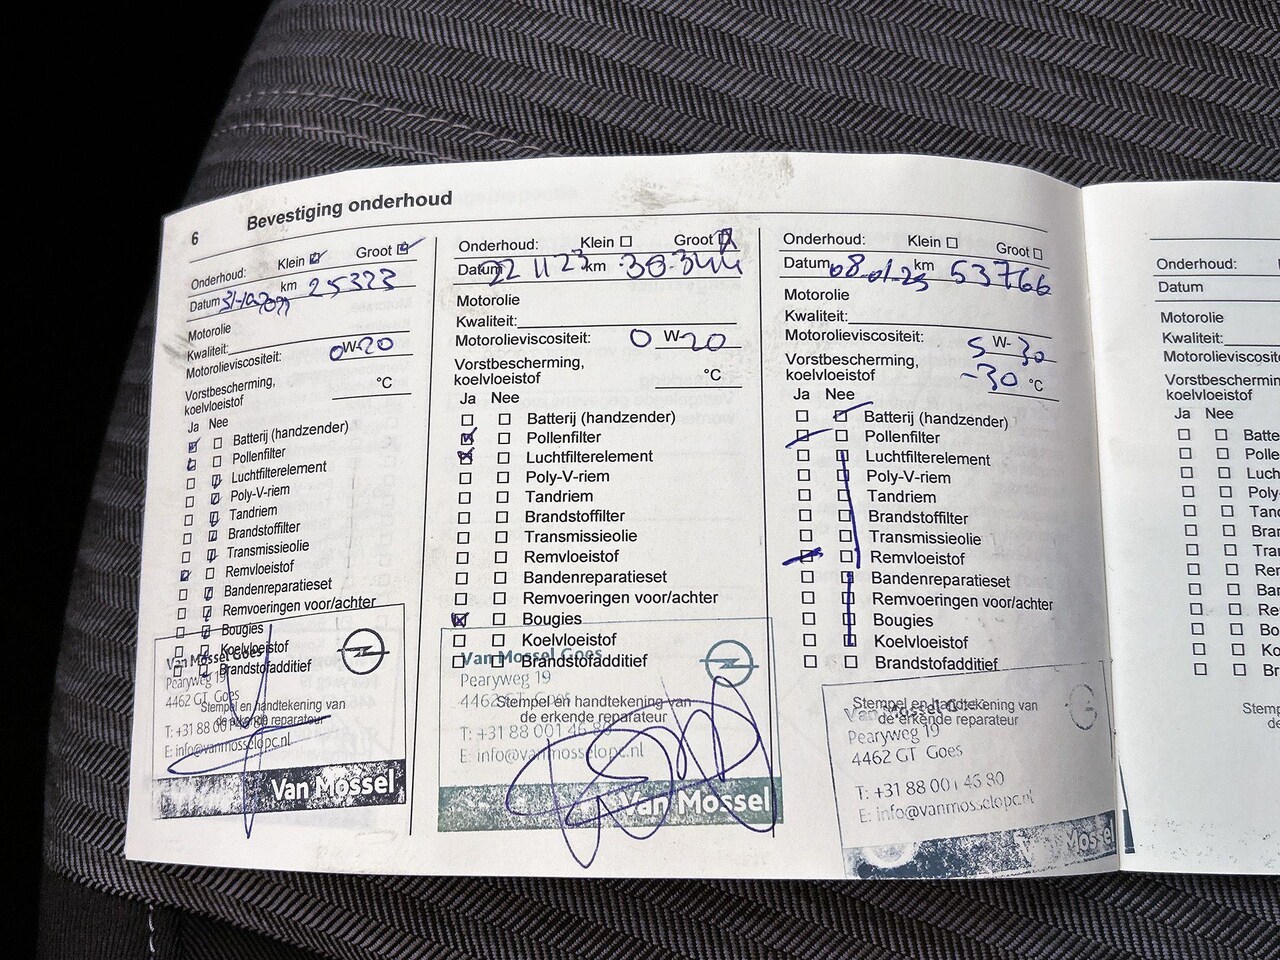 6 Bevestiging onderhoud
Onderhoud: Klein Groot
Datum km 25323
Motorolie
Kwaliteit:
Motorolieviscositeit: 0 W-20
Vorstbescherming,
koelvloeistof °C
Ja Nee
Batterij (handzender)
Pollenfilter
Luchtfilterelement
Poly-V-riem
Tandriem
Brandstoffilter
Transmissieolie
Remvloeistof
Bandenreparatieset
Remvoeringen voor/achter
Bougies
Koelvloeistof
Brandstofadditief
Stempel en handtekening van
de erkende reparateur
Van Mossel Goes
Pearyweg 19
4462 GT Goes
T: +31 88 001 46 80
E: info@vanmosselopc.nl
Van Mossel
Onderhoud: Klein Groot
Datum 22 11 23 km 38.344
Motorolie
Kwaliteit:
Motorolieviscositeit: 0 W-20
Vorstbescherming,
koelvloeistof °C
Ja Nee
Batterij (handzender)
Pollenfilter
Luchtfilterelement
Poly-V-riem
Tandriem
Brandstoffilter
Transmissieolie
Remvloeistof
Bandenreparatieset
Remvoeringen voor/achter
Bougies
Koelvloeistof
Brandstofadditief
Stempel en handtekening van
de erkende reparateur
Van Mossel Goes
Pearyweg 19
4462 GT Goes
T: +31 88 001 46 80
E: info@vanmosselopc.nl
Van Mossel
Onderhoud: Klein Groot
Datum 08-01-25 km 53766
Motorolie
Kwaliteit:
Motorolieviscositeit: 5 W-30
Vorstbescherming,
koelvloeistof -30 °C
Ja Nee
Batterij (handzender)
Pollenfilter
Luchtfilterelement
Poly-V-riem
Tandriem
Brandstoffilter
Transmissieolie
Remvloeistof
Bandenreparatieset
Remvoeringen voor/achter
Bougies
Koelvloeistof
Brandstofadditief
Stempel en handtekening van
de erkende reparateur
Pearyweg 19
4462 GT Goes
T: +31 88 001 46 80
E: info@vanmosselopc.nl
Mossel
Onderhoud:
Datum
Motorolie
Kwaliteit:
Motorolieviscosite
Vorstbeschermin
koelvloeistof
Ja Nee
Batte
Polle
Lucht
Poly
Tand
Bran
Tra
Rem
Ban
Re
Bo
Ko
Br
Stemp
de